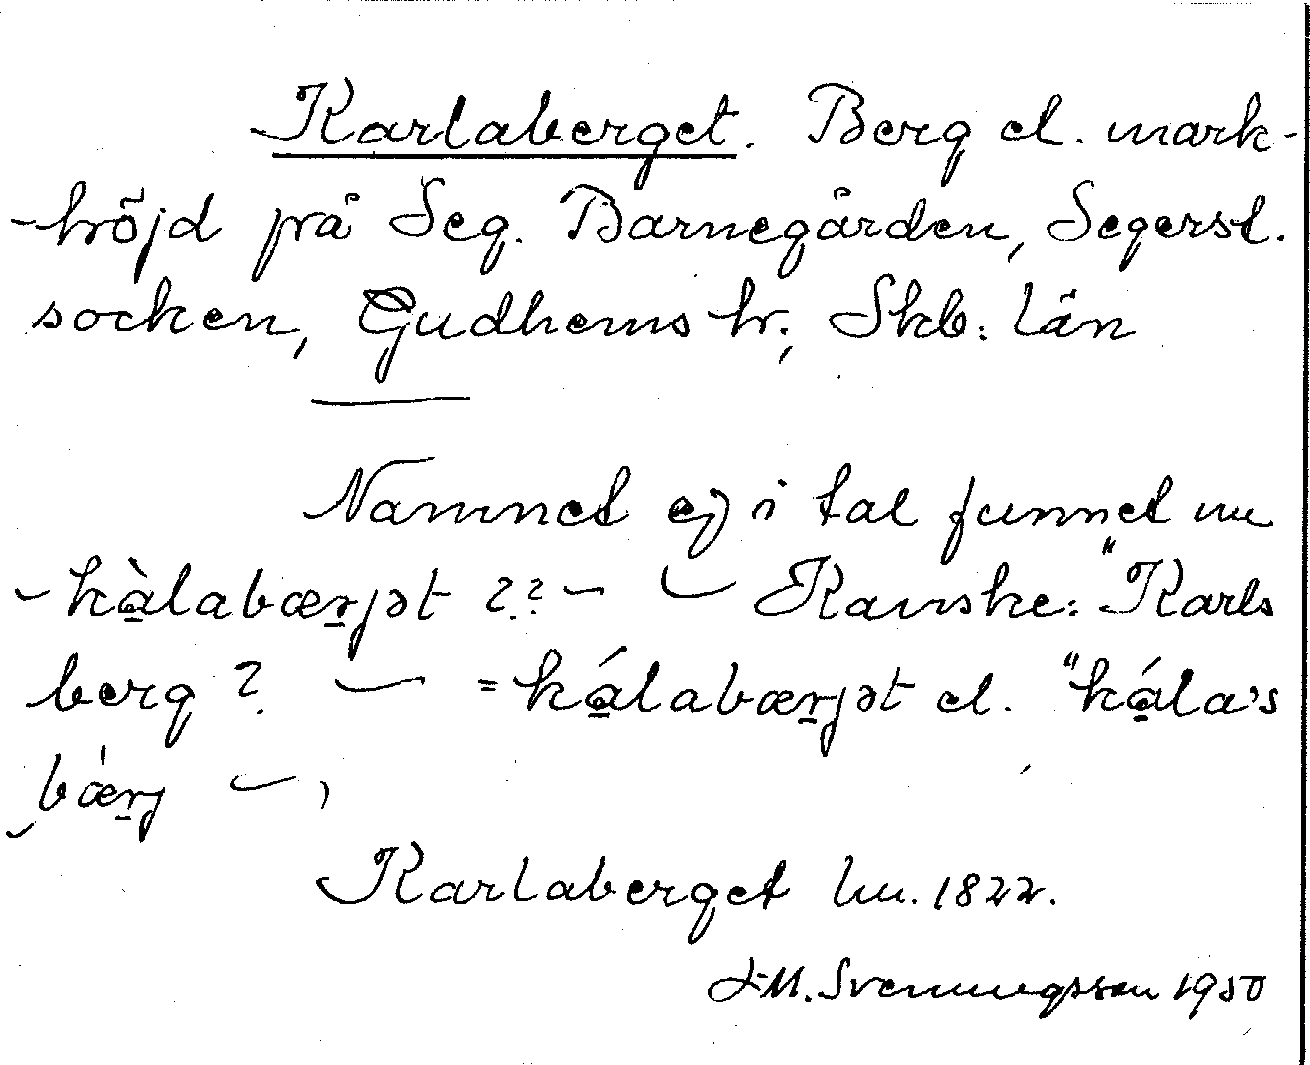 Karlaberget. Berg el. mark-
höjd på Seg. Barnegården, Segerst.
socken, Gudhems hr., Skb. län
Namnet ej i tal funnet nu
- kàlabærjət ?? - - Kanske: "Karls
berg? - = kálabærjət el. "kála's
bærj -,
Karlaberget hu. 1822.
J.M. Svenningsson 1950